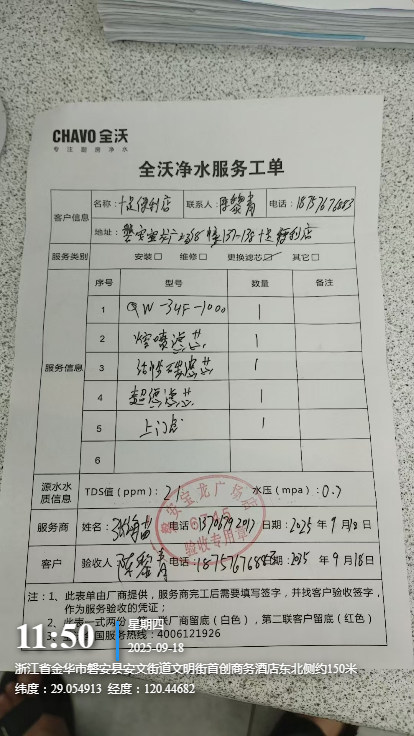 CHAVO 全沃
专注厨房净水
全沃净水服务工单
客户信息 名称：十足便利店 联系人：陈黎青 电话：18757676883
地址：磐安宝龙广场 137-138 十足便利店
服务类别 安装□ 维修□ 更换滤芯☑ 其它□
服务信息 序号 型号 数量 备注
1 QW-34F-1000 1
2 熔喷滤芯 1
3 活性碳滤芯 1
4 超滤滤芯 1
5 上门费 1
6
源水水质信息 TDS值（ppm）：21 水压（mpa）：0.3
服务商 姓名： 电话 日期：2025年9月18日
客户 验收人 陈黎青 电话：18757676883 日期：2025年9月18日
宝龙广场店
验收专用章
注：1、此表单由厂商提供，服务商完工后需要填写签字，并找客户验收签字，
作为服务验收的凭证；
2、此表一式两分 联厂商留底（白色），第二联客户留底（红色）
国服务热线：4006121926
11:50
星期四
2025-09-18
浙江省金华市磐安县安文街道文明街首创商务酒店东北侧约150米
纬度：29.054913 经度：120.44682